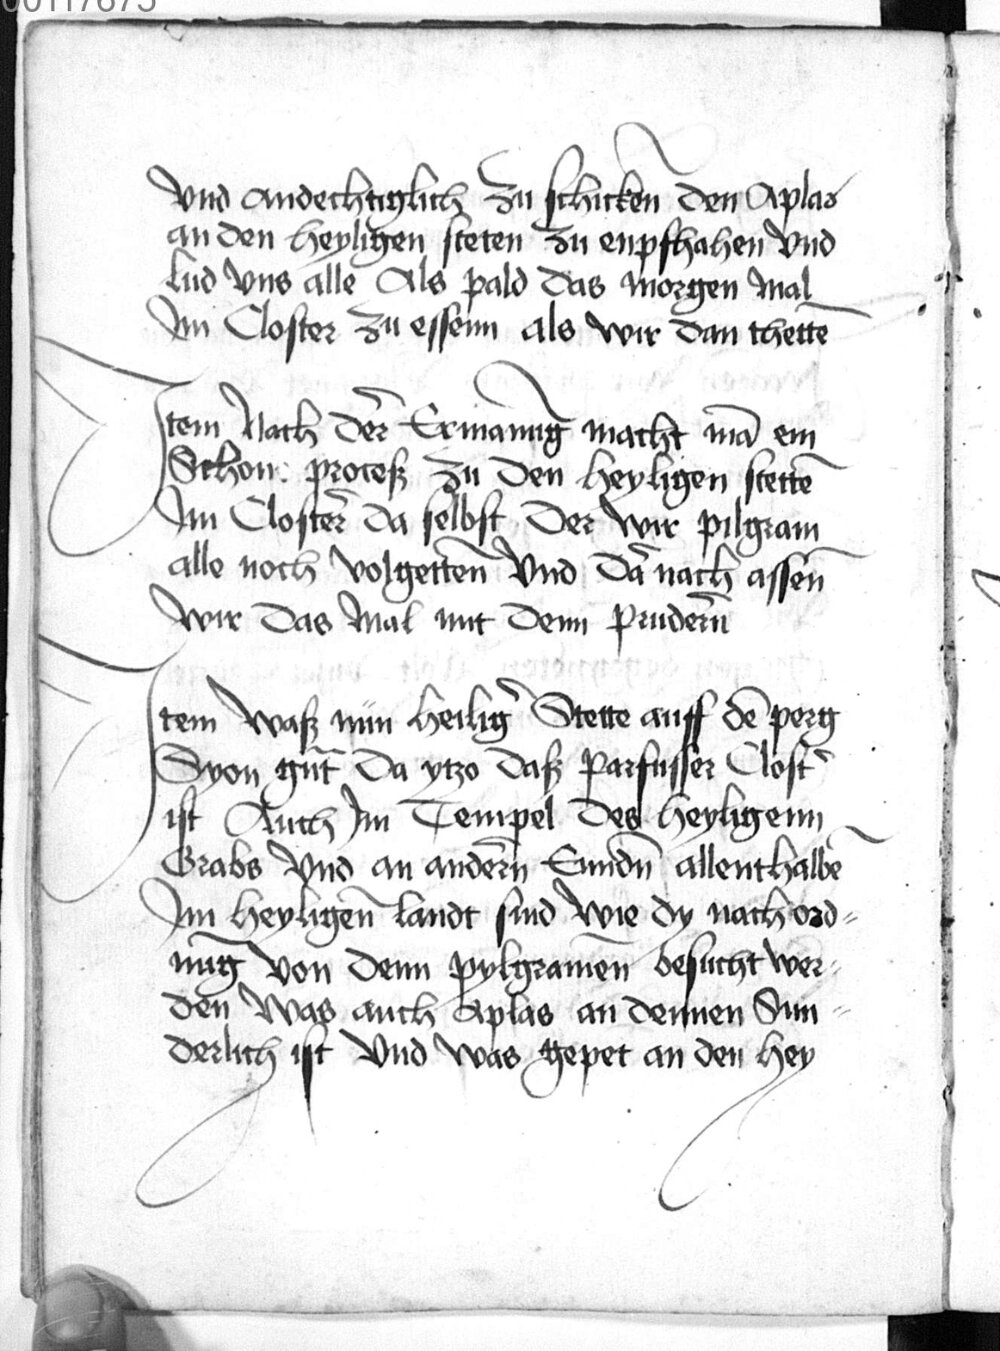 00117675
Vnd andechtiglich zu schicken den Aplas
an den heyligen steten zu enpfhahen Vnd
lud Vns alle Als pald das morgen Mal
Im Closter zu essenn als wir dan thettē
Item Nach der Ermanūg macht mā ein
Schon proceß zu den heyligen stettē
Im Closter da selbst Der wir pilgram
alle noch Volgetten Vnd dā nach assen
wir das Mal mit denn prudern
Item waß nün heilig Stette auff dē perg
Syon da ytzo daß Parfusser Clost
ist Auch Im Tempel des heyligenn
Grabs Vnd an andern Enndn allenthalbē
Im heyligen landt sind wie dy nach ord=
nūg von denn pylgramen besucht wer=
den Was auch Aplas an dennen Sun=
derlich ist Vnd was gepet an den hey